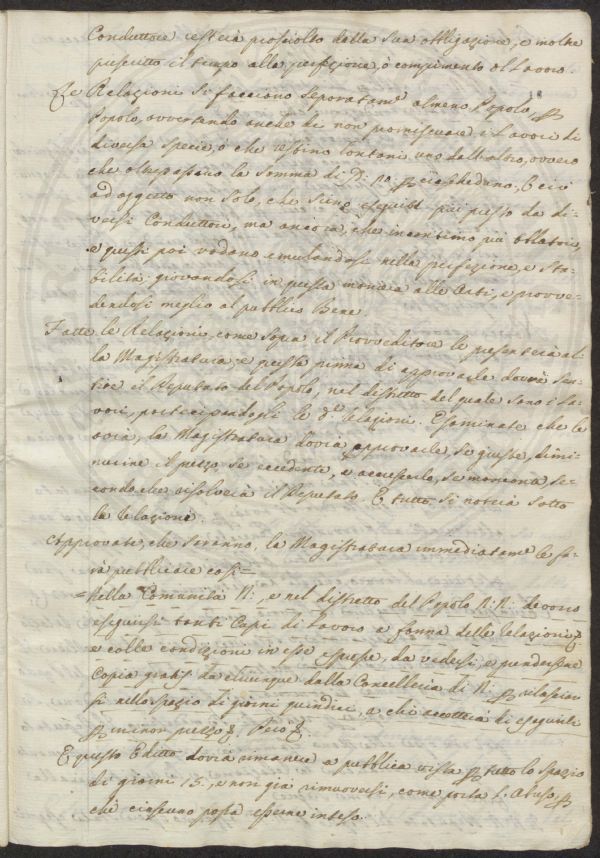 Conduttore resterà prosciolto dalla Sua obbligazione, e molto
prescritto il tempo alla perfezione, o compimento del Lavoro.
18
Le Relazioni si facciano Separatam.e almeno Popolo, per
Popolo, avvertendo anche di non promiscuare i Lavori di
diversa specie, o che restino lontani uno dall'altro, ovvero
che oltrepassano la somma di per ciascheduno, e ciò
ad oggetto non solo, che siene eseguiti più presto da di-
versi Conduttori, ma ancora, che incontrino più oblatori,
e questi poi vadano emulandosi nella perfezione, e sta-
bilità, giovandosi in questa maniera alle Arti, e provve-
dendosi meglio al pubblico Bene.
Fatte le Relazioni, come sopra il Provveditore le presenterà al-
la Magistratura, e questa prima di approvarle dovrà sen-
tire il Deputato del Popolo, nel distretto del quale sono i La-
vori, partecipandogli le d.e Relazioni. Esaminate che le
avrà, la Magistratura dovrà approvarle, se giuste, dimi-
nuirne il prezzo se eccedente, e accrescerlo, se mancante se-
condo che risolverà il Deputato. E tutto si noterà sotto
la Relazione.
Approvate, che saranno, la Magistratura immediatam.e le fa-
rà pubblicare così =
= Nella Comunità N:, e nel distretto del Popolo N: N: devono
eseguirsi tanti Capi di Lavoro a forma delle Relazioni
e colle condizioni in esse espresse, da vedersi, e prendersene
Copia gratis da chiunque dalla Cancelleria di N. per rilasciar-
si nello spazio di giorni quindici, a chi accetterà di eseguirli
per minor prezzo
E questo Editto dovrà rimanere a pubblica vista per tutto lo spazio
di giorni 15., e non già rimuoversi, come porta l'Abuso, per-
chè ciascuno possa esserne inteso.